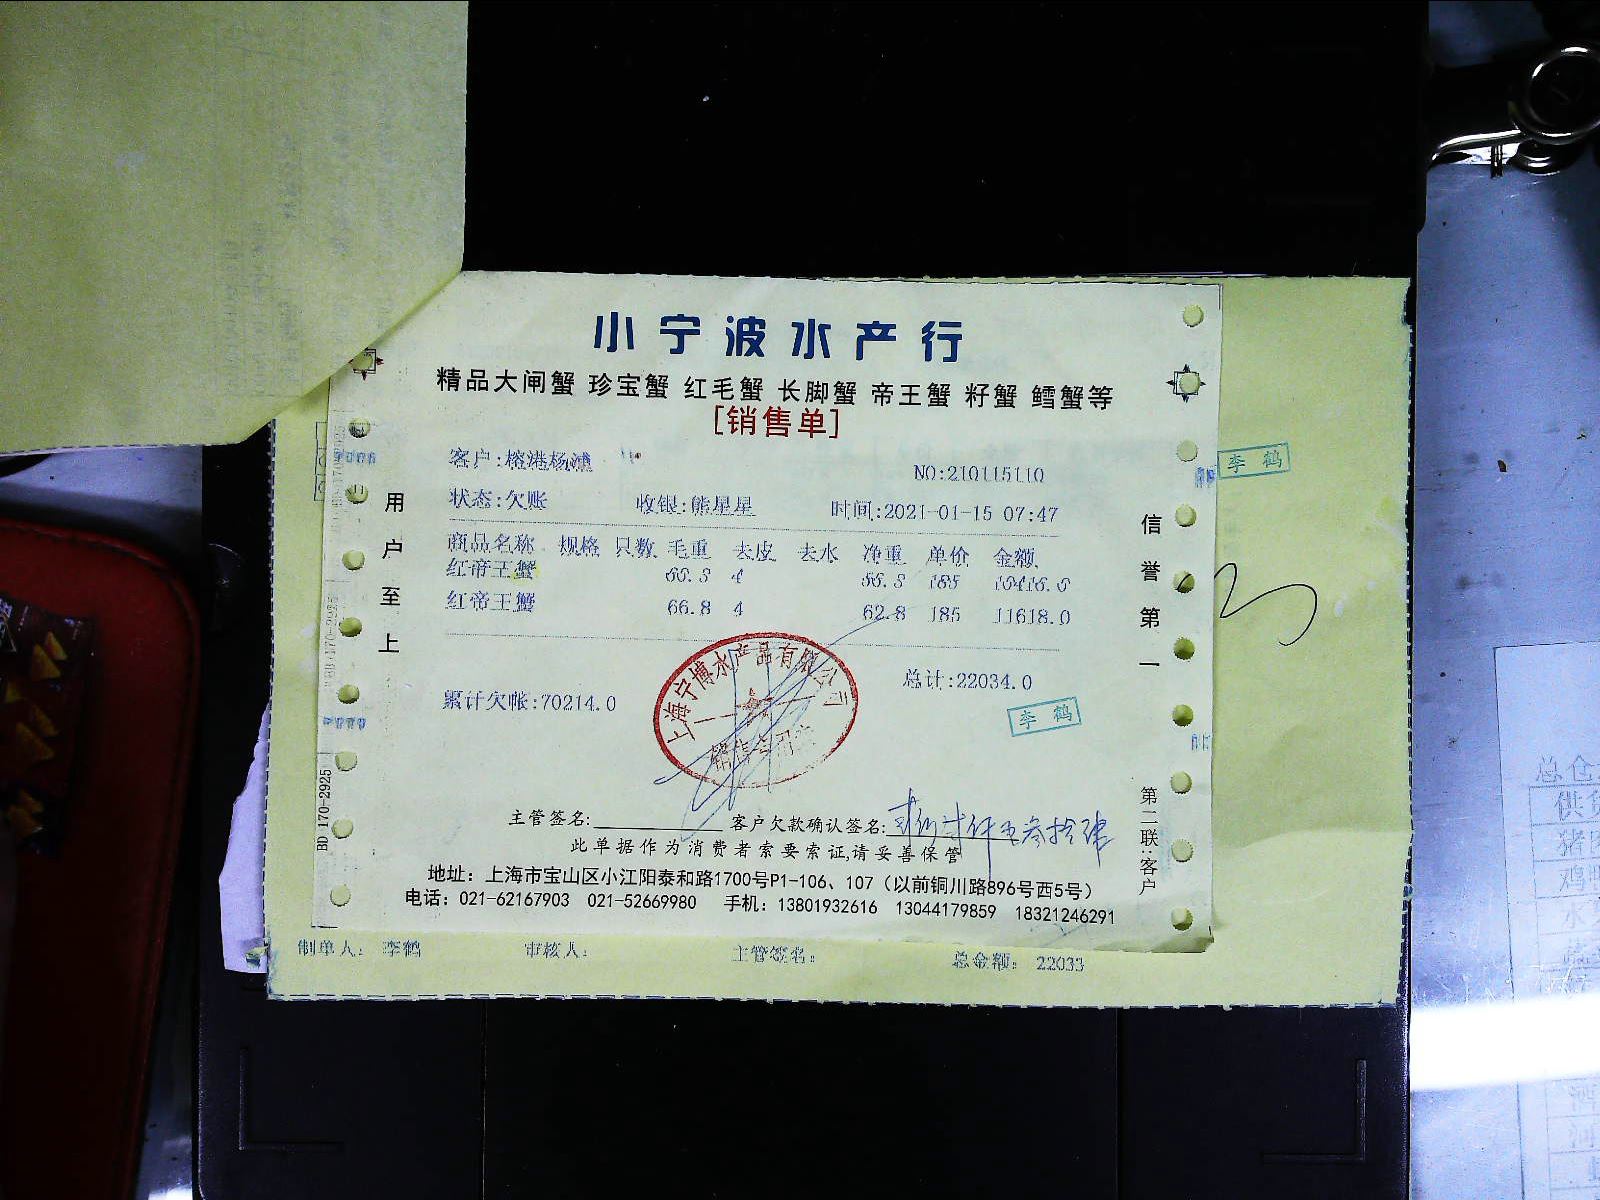 小宁波水产行
精品大闸蟹 珍宝蟹 红毛蟹 长脚蟹 帝王蟹 籽蟹 鳕蟹等
[销售单]
客户:榕港杨浦
NO:210115110
状态:欠账 收银:熊星星 时间:2021-01-15 07:47
商品名称 规格 只数 毛重 去皮 去水 净重 单价 金额
红帝王蟹 4 185 10416.0
红帝王蟹 66.8 4 62.8 185 11618.0
累计欠帐:70214.0
总计:22034.0
上海宁博水产品有限公司
李鹤
李鹤
用户至上
信誉第一
第二联:客户
BD 170-2925
主管签名: 客户欠款确认签名:
此单据作为消费者索要索证,请妥善保管
地址：上海市宝山区小江阳泰和路1700号P1-106、107（以前铜川路896号西5号）
电话：021-62167903 021-52669980 手机：13801932616 13044179859 18321246291
制单人：李鹤 审核人： 主管签名： 总金额：22033